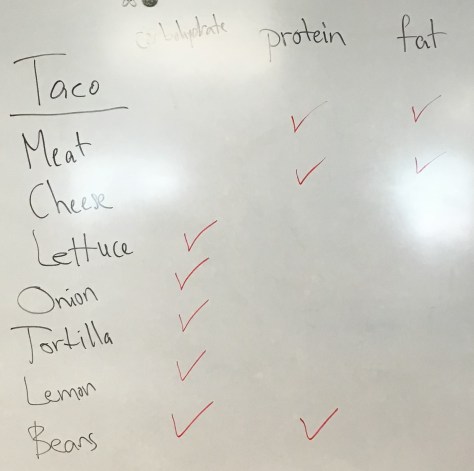 carbohydrate protein fat
Taco
Meat ✓ ✓
Cheese ✓ ✓
Lettuce ✓
Onion ✓
Tortilla ✓
Lemon ✓
Beans ✓ ✓